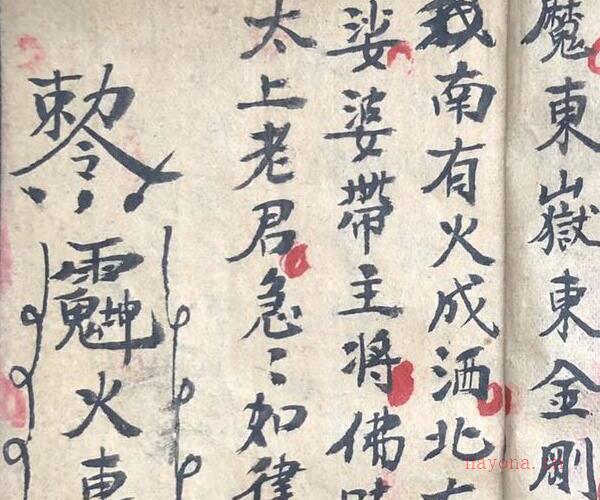 魔東山嶽東金剛
南有火成洒北
娑婆帶主將佛
太上老君急〻如律
勅令
火車
nayona.cn